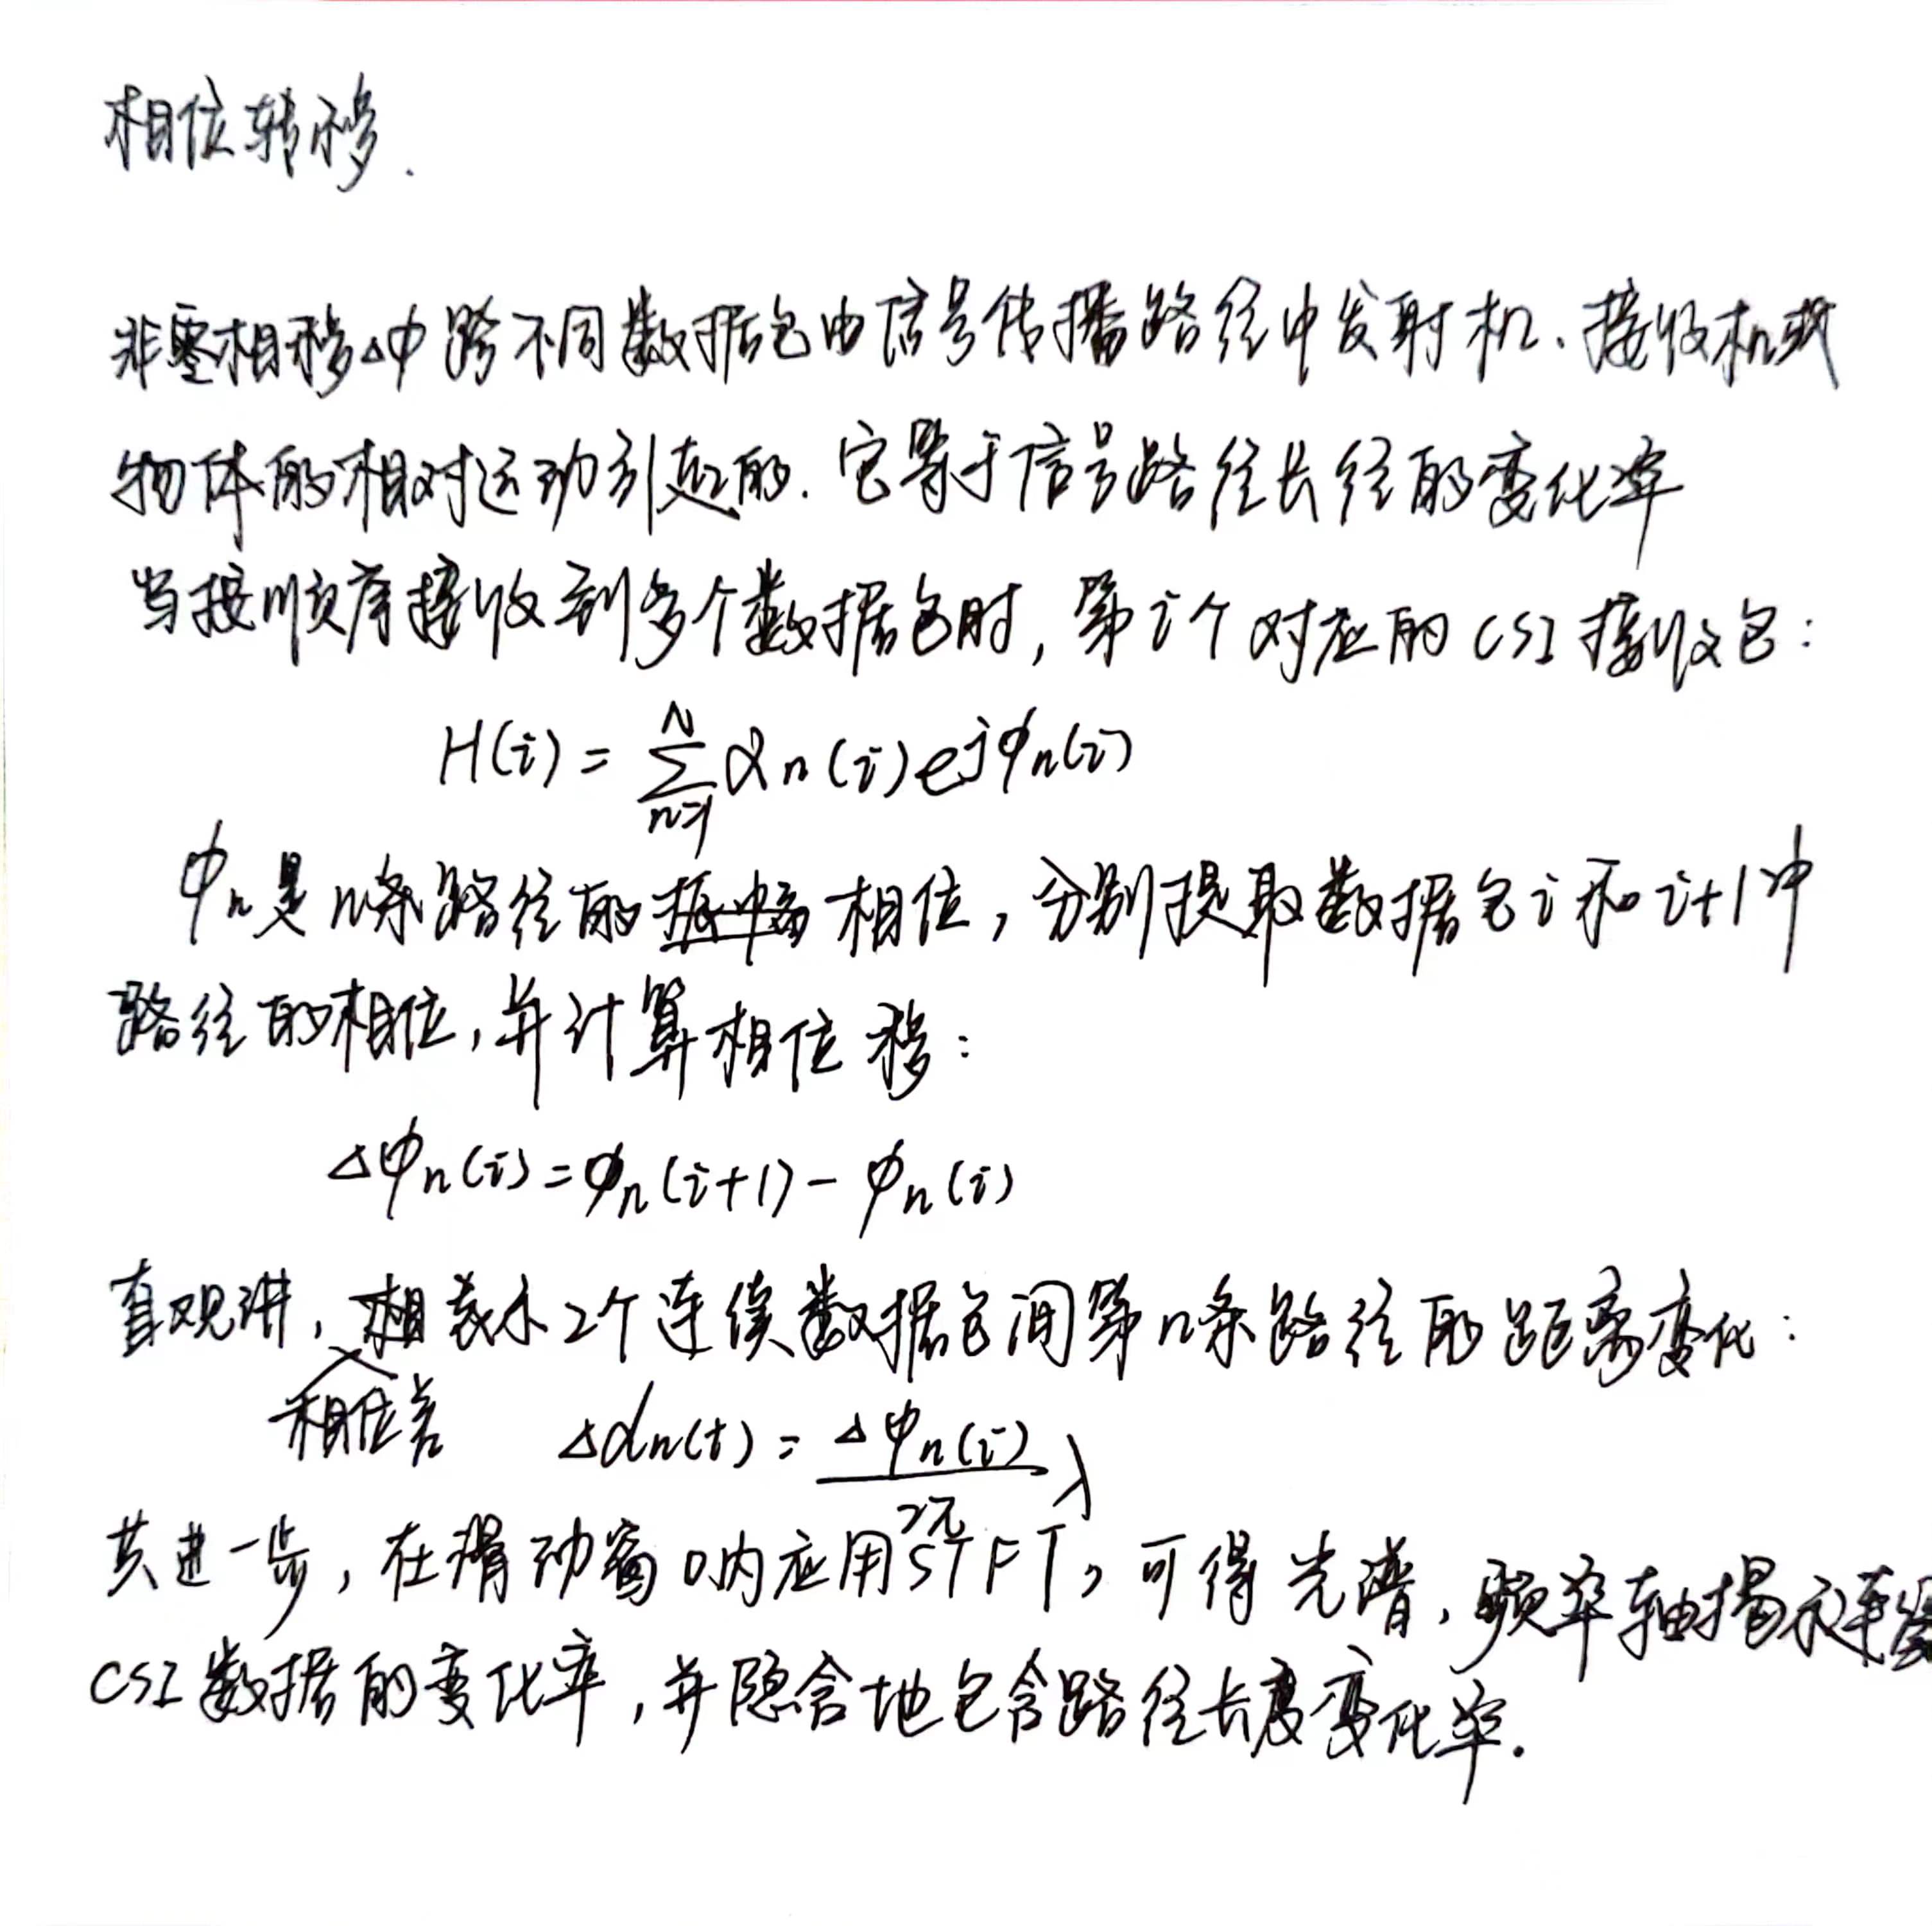 相位转移.
非零相移△φ跨不同数据包由信号传播路径中发射机、接收机或
物体的相对运动引起的.它等于信号路径长径的变化率
当按顺序接收到多个数据包时,第i个对应的CSI接收包:
H(i)=∑_{n=1}^{N}αn(i)e^{jφn(i)}
φn是n条路径的相位,分别提取数据包i和i+1中
路径的相位,并计算相位移:
△φn(i)=φn(i+1)-φn(i)
直观讲,表示2个连续数据包间第n条路径的距离变化:
相位差
△dn(t)=\frac{△φn(i)}{2π}λ
共进一步,在滑动窗口内应用STFT,可得光谱,频率轴揭示连续
CSI数据的变化率,并隐含地包含路径长度变化率.